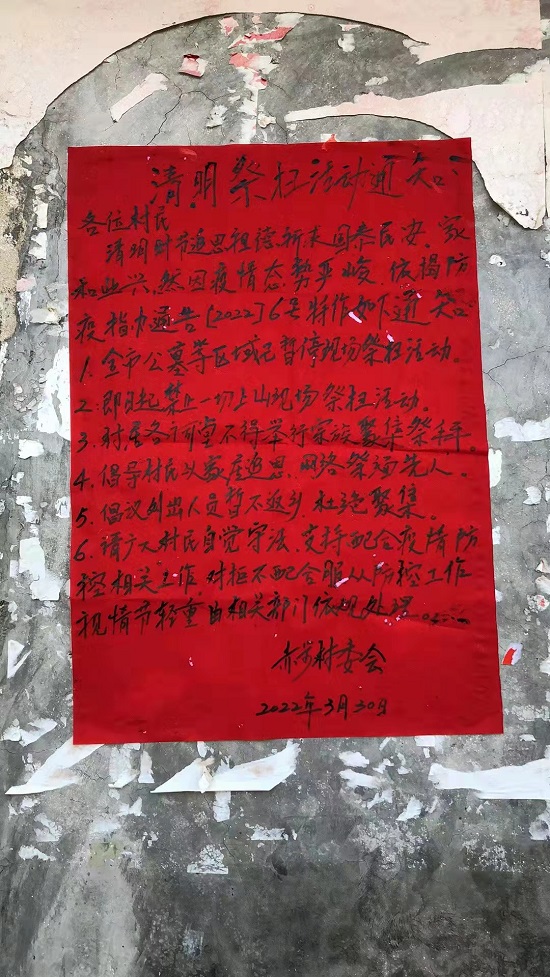 清明祭扫活动通知
各位村民
清明时节追思祖德,祈求国泰民安、家
和业兴,然因疫情态势严峻,依揭防
疫指办通告[2022]6号特作如下通知
1.全市公墓等区域已暂停现场祭扫活动。
2.即日起禁止一切上山现场祭扫活动。
3.对居各祠堂不得举行家族聚集祭拜。
4.倡导村民以家庭追思、网络祭扫先人。
5.倡议外出人员暂不返乡,杜绝聚集。
6.请广大村民自觉守法、支持配合疫情防
控相关工作,对拒不配合服从防控工作
视情节轻重由相关部门依规处理
村委会
2022年3月30日